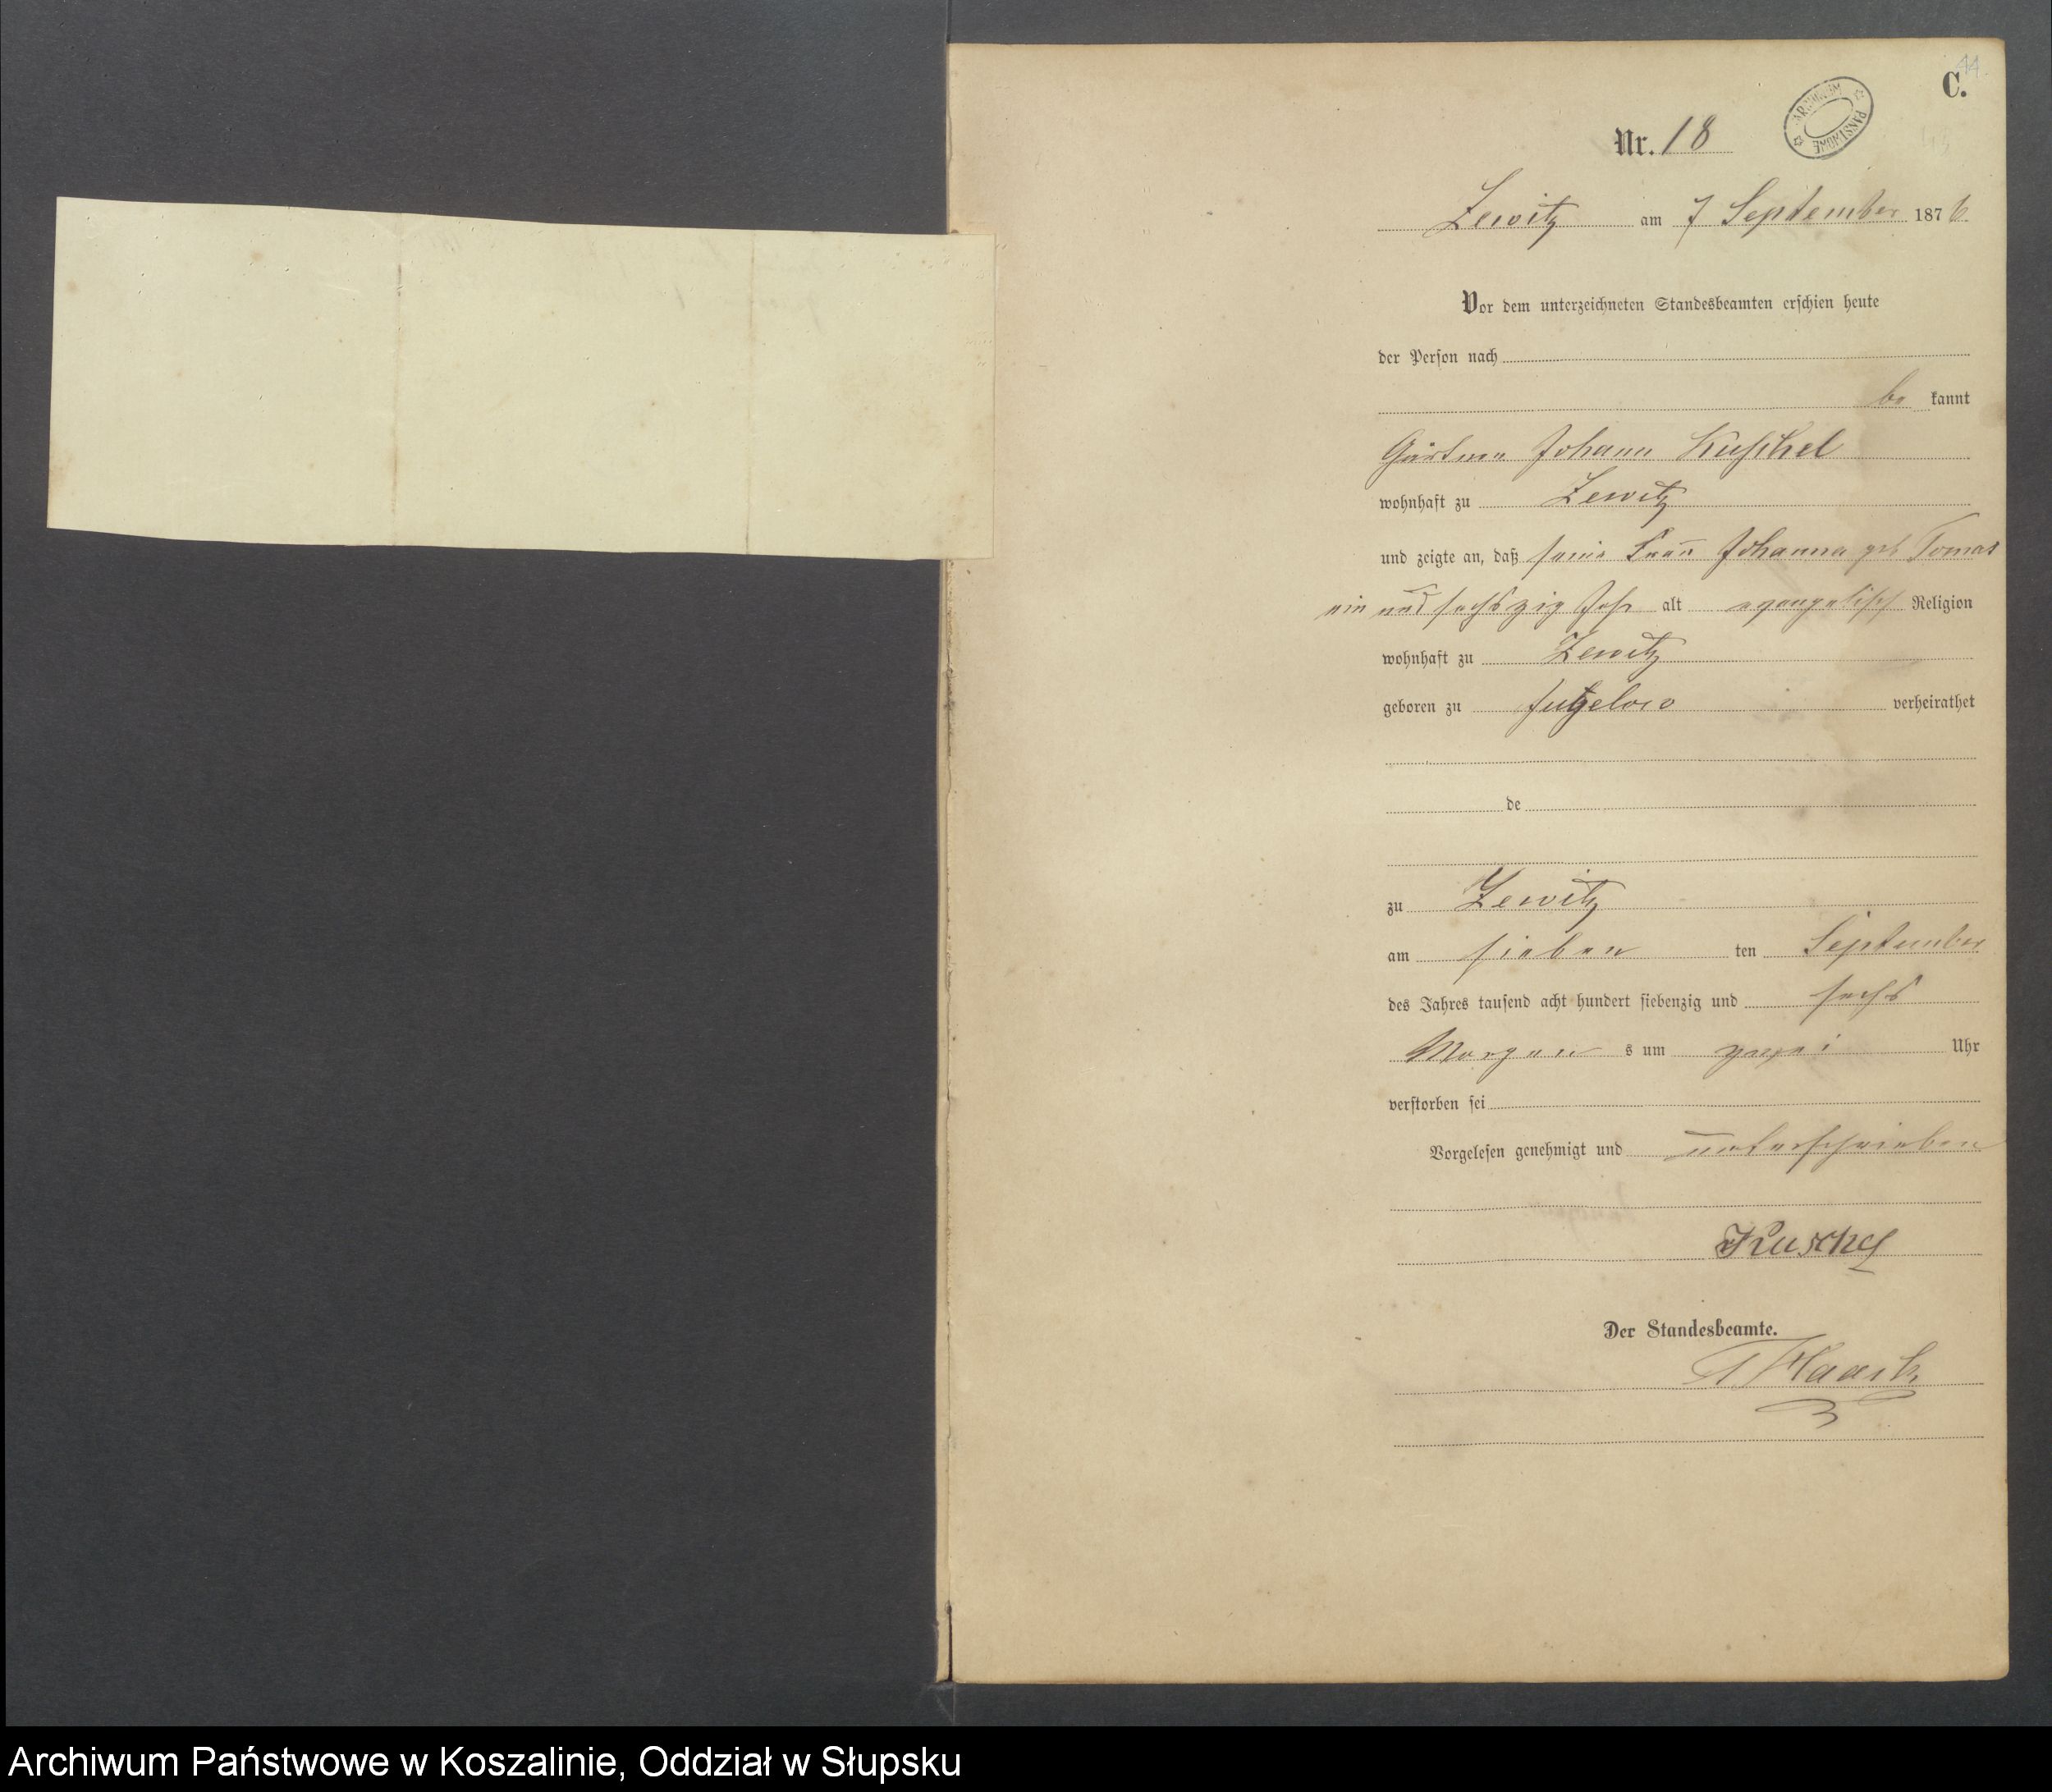 44.
C.
ARCHIWUM PAŃSTWOWE
Nr. 18
Zewitz am 7 September 1876
Vor dem unterzeichneten Standesbeamten erschien heute
der Person nach
be kannt
Gärtner Johann Kuschel
wohnhaft zu Zewitz
und zeigte an, daß seine Frau Johanna geb Tomas
ein und sechszig Jahr alt evangelisch Religion
wohnhaft zu Zewitz
geboren zu verheirathet
de
zu Zewitz
am sieben ten September
des Jahres tausend acht hundert siebenzig und sechs
Morgen s um zwei Uhr
verstorben sei
Vorgelesen genehmigt und unterschrieben
Kuschel
Der Standesbeamte.
Archiwum Państwowe w Koszalinie, Oddział w Słupsku